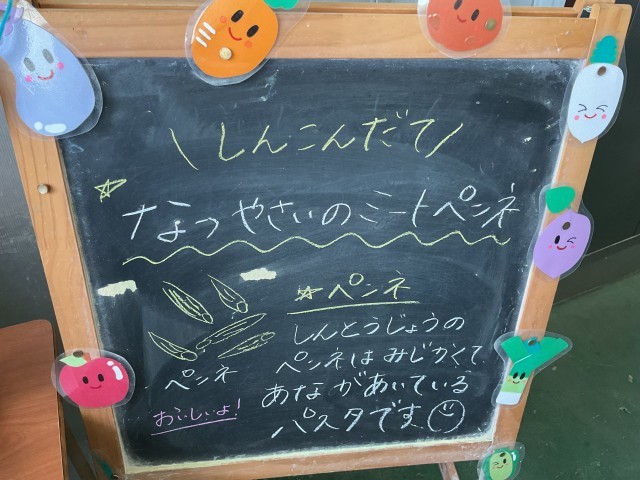 \しんこんだて/
☆なつやさいのミートペンネ
☆ペンネ
しんとうじょうの
ペンネはみじかくて
あながあいている
パスタです
ペンネ
おいしいよ!